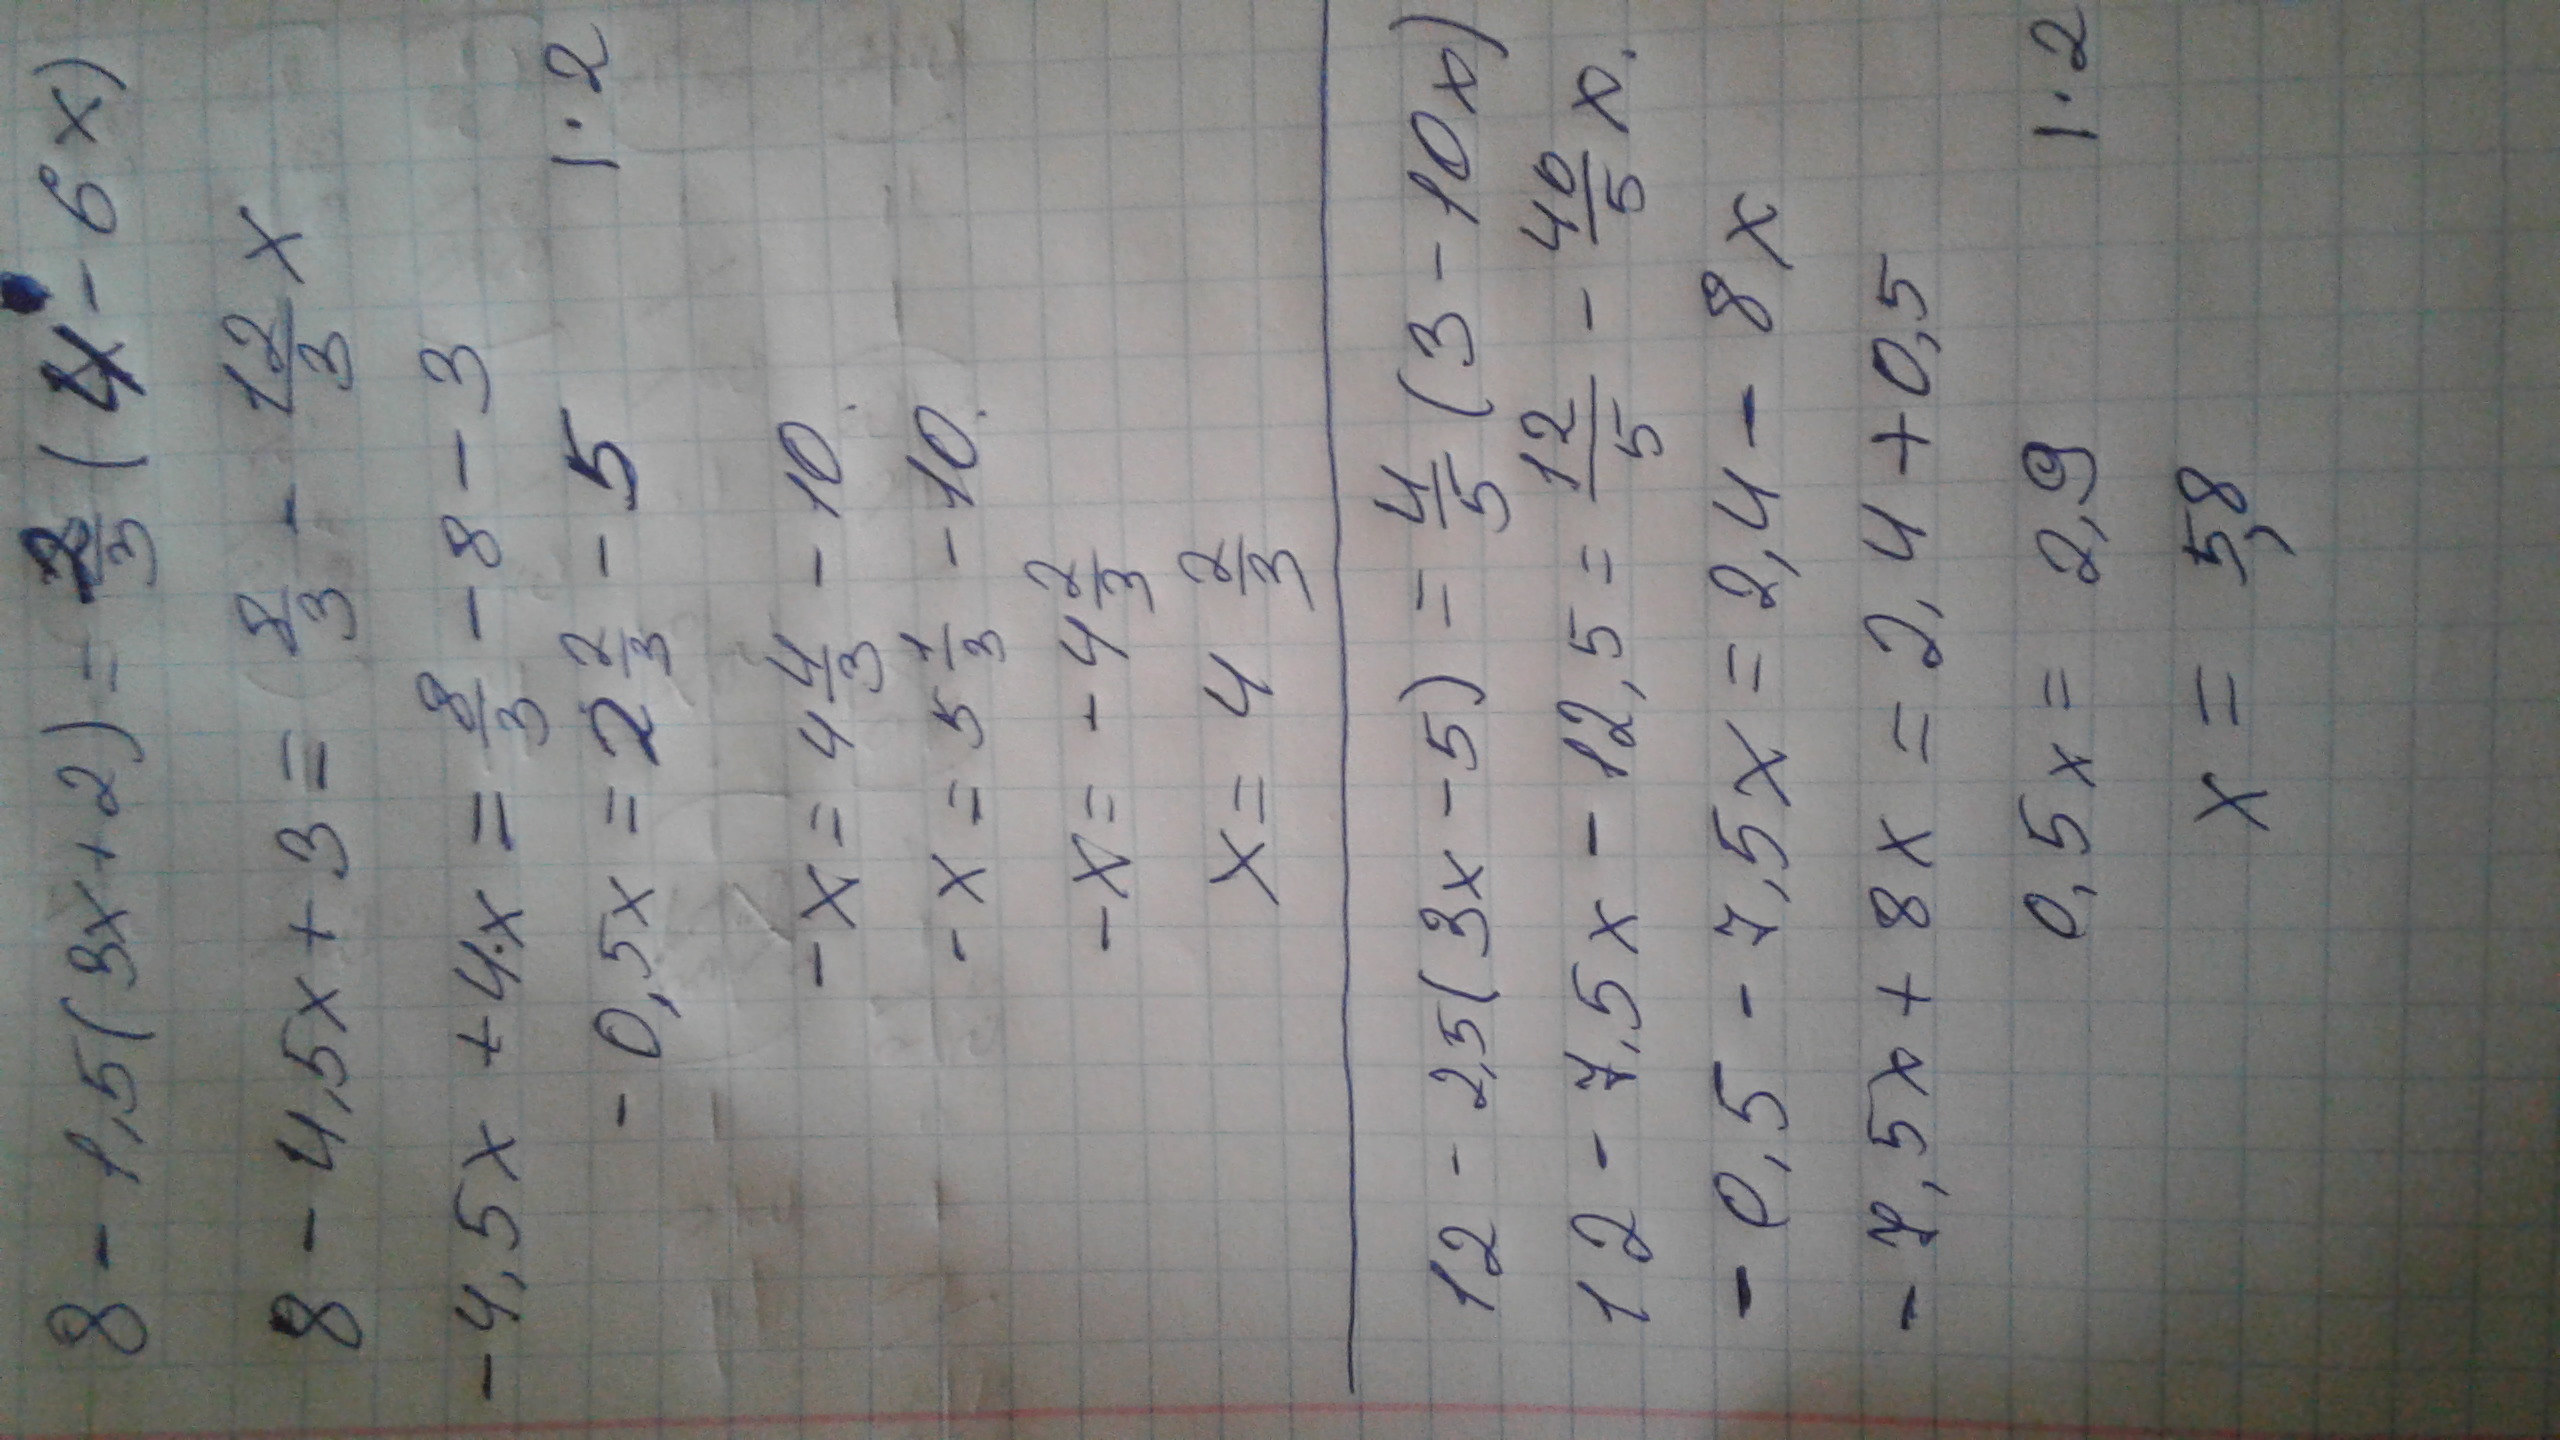 8 - 1,5(3x+2) = 2/3 (4 - 6x)
8 - 4,5x + 3 = 8/3 - 12/3 x
-4,5x + 4·x = 8/3 - 8 - 3
- 0,5x = 2 2/3 - 5 |·2
-x = 4 4/3 - 10
-x = 5 1/3 - 10.
-x = -4 2/3
x = 4 2/3
12 - 2,5(3x-5) = 4/5 (3-10x)
12 - 7,5x - 12,5 = 12/5 - 40/5 x.
- 0,5 - 7,5x = 2,4 - 8x
- 7,5x + 8x = 2,4 + 0,5
0,5x = 2,9 |·2
x = 5,8